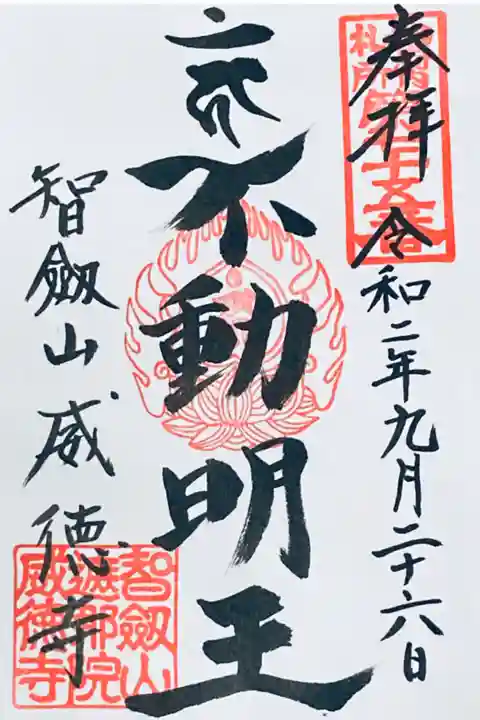 奉拝 令和二年九月二十六日
不動明王
智劔山威徳寺
智劔山
威徳寺